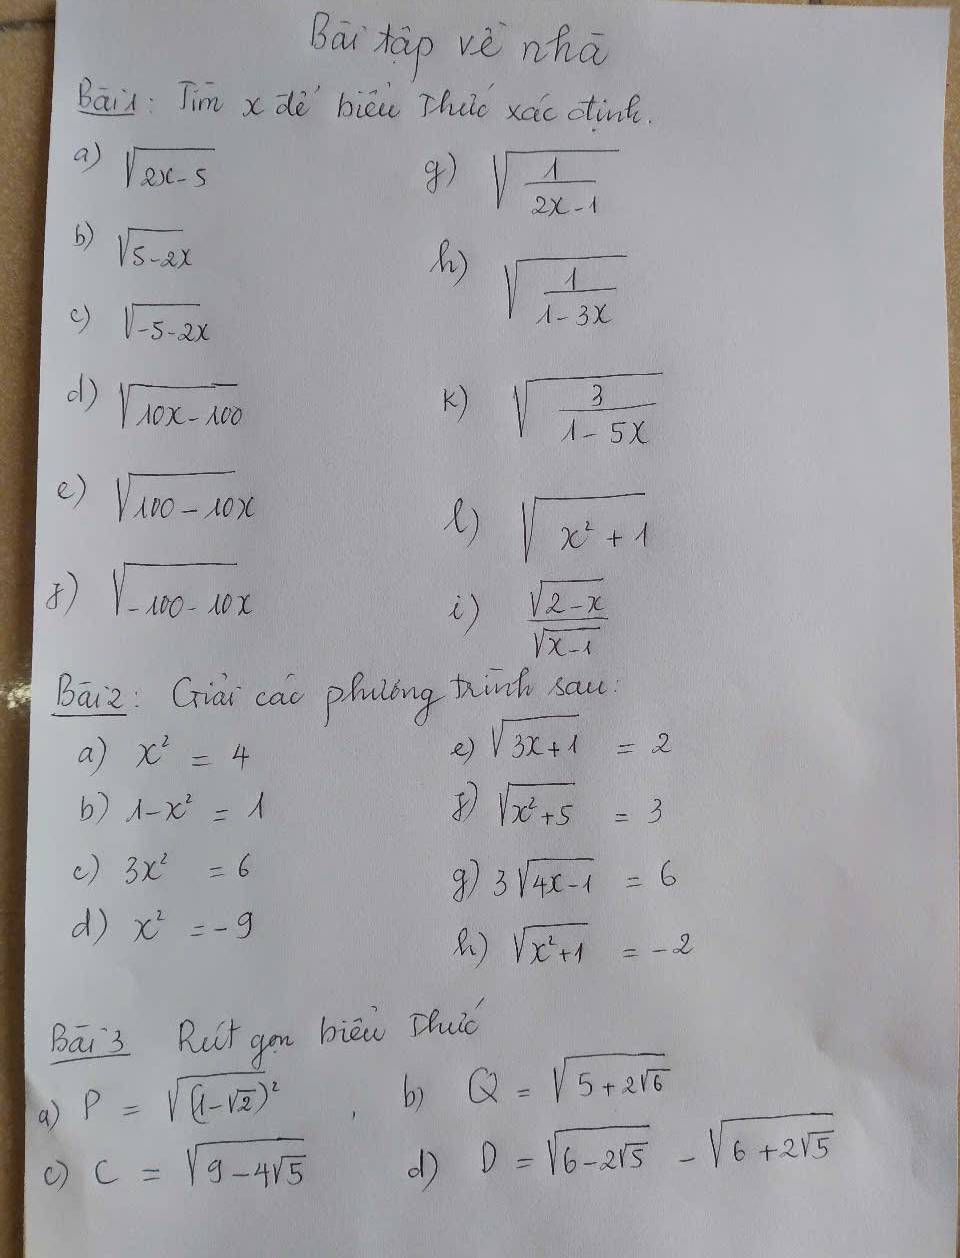 Bài tập về nhà
Bài 1: Tìm x để biểu thức xác định.
a) √(2x-5)
g) √(1/(2x-1))
b) √(5-2x)
h) √(1/(1-3x))
c) √(-5-2x)
d) √(10x-100)
k) √(3/(1-5x))
e) √(100-10x)
l) √(x²+1)
f) √(-100-10x)
i) √(2-x)/√(x-1)
Bài 2: Giải các phương trình sau:
a) x² = 4
e) √(3x+1) = 2
b) 1-x² = 1
f) √(x²+5) = 3
c) 3x² = 6
g) 3√(4x-1) = 6
d) x² = -9
h) √(x²+1) = -2
Bài 3 Rút gọn biểu thức
a) P = √((1-√2)²) , b) Q = √(5+2√6)
c) C = √(9-4√5) d) D = √(6-2√5) - √(6+2√5)